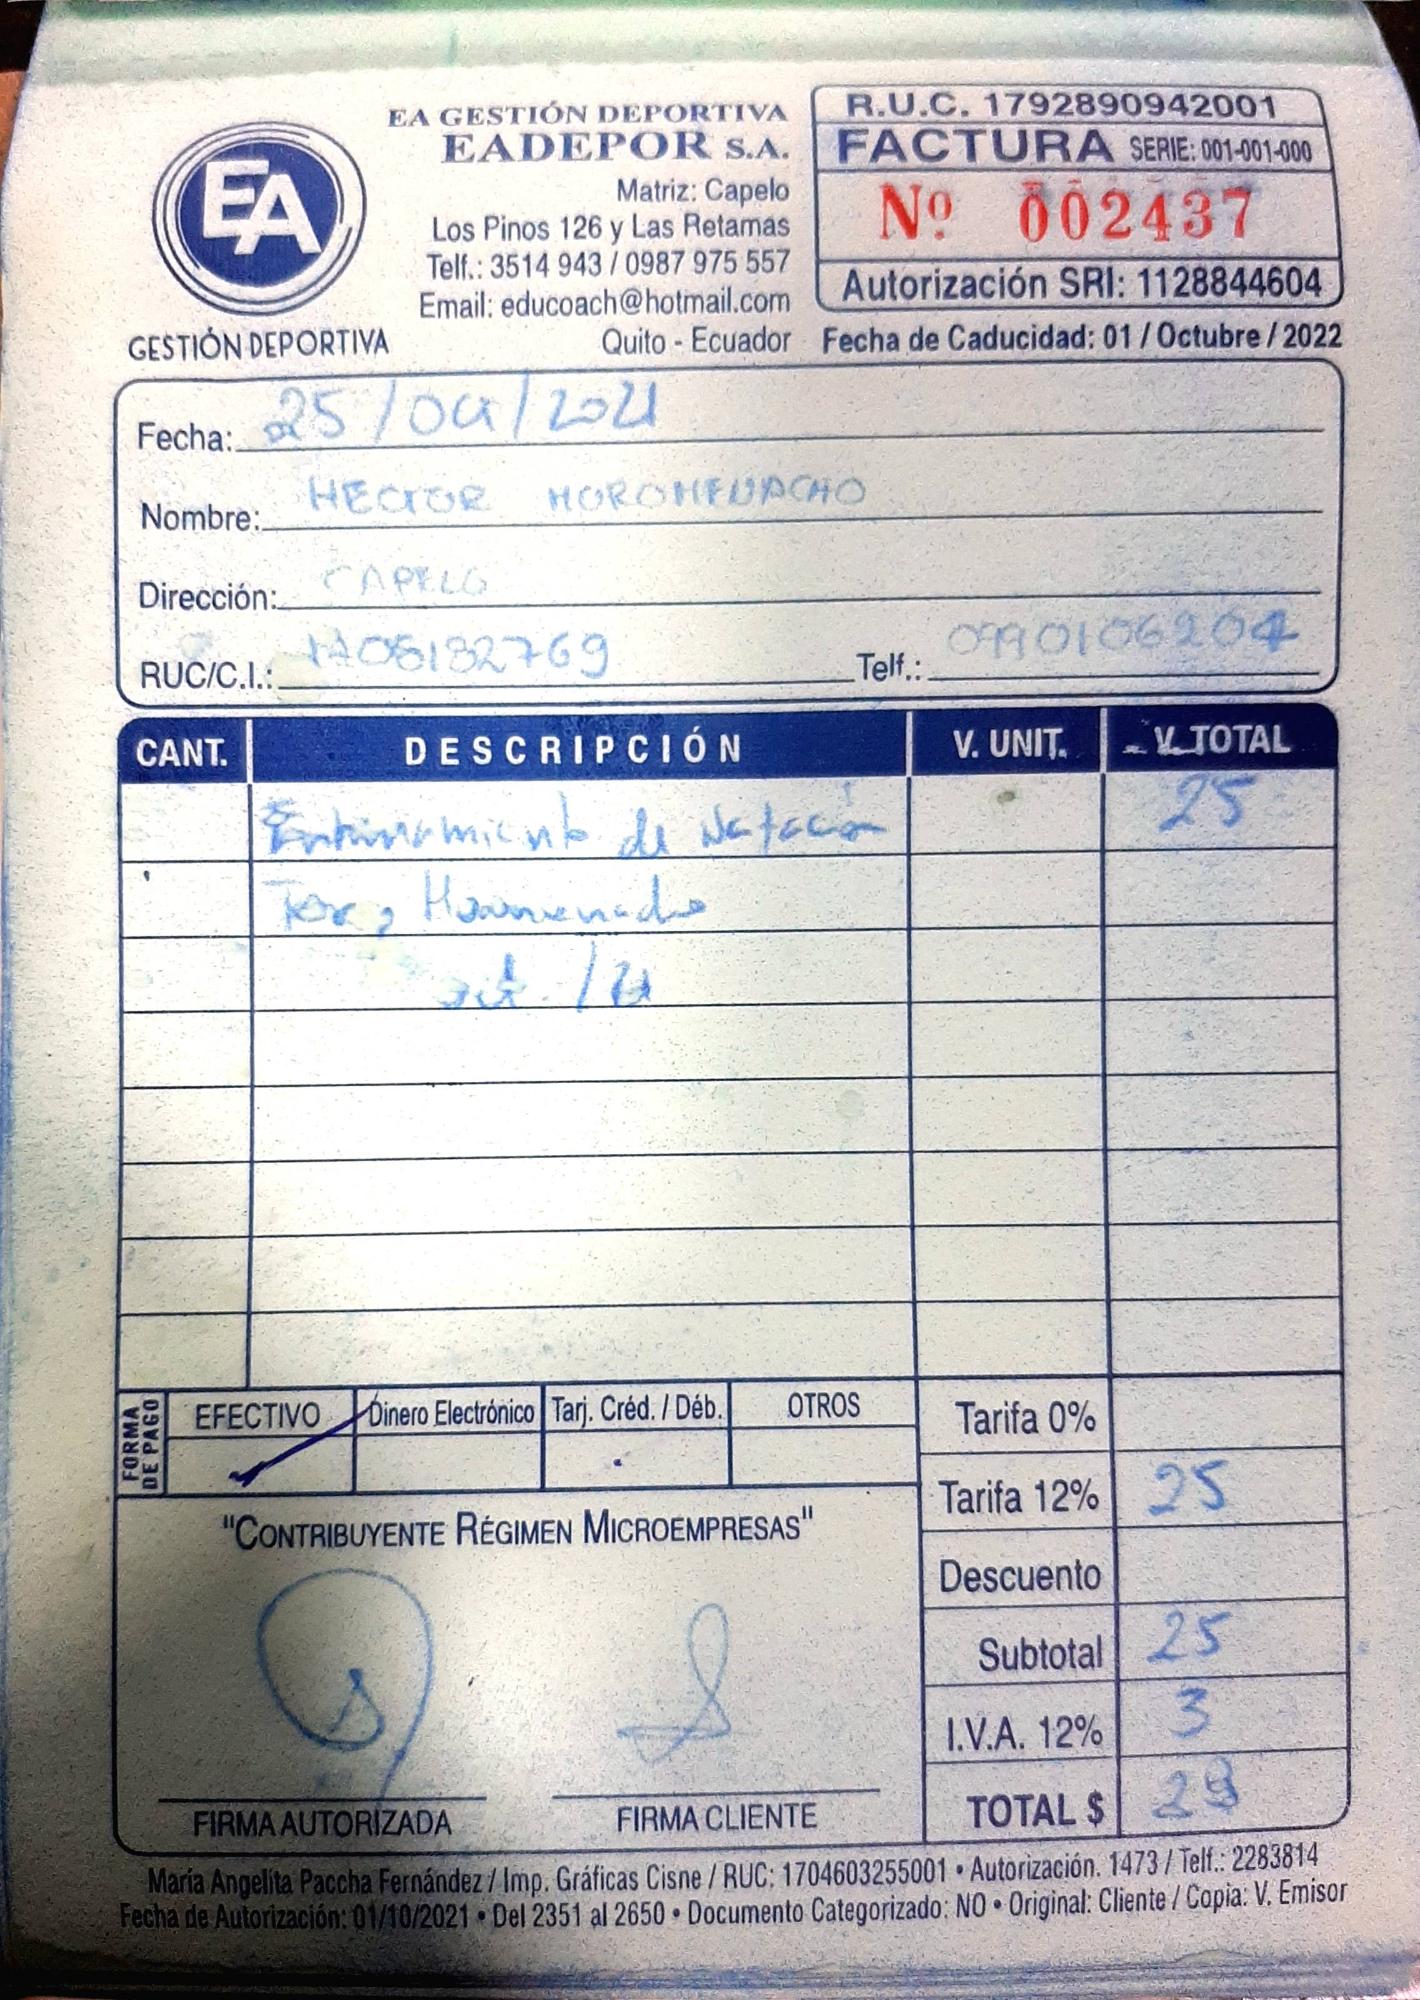 EA
GESTIÓN DEPORTIVA
EA GESTIÓN DEPORTIVA
EADEPOR S.A.
Matriz: Capelo
Los Pinos 126 y Las Retamas
Telf.: 3514 943 / 0987 975 557
Email: educoach@hotmail.com
Quito - Ecuador
R.U.C. 1792890942001
FACTURA SERIE: 001-001-000
Nº 002437
Autorización SRI: 1128844604
Fecha de Caducidad: 01 / Octubre / 2022
Fecha: 25/Oct/2021
Nombre: HECTOR
Dirección: CAPELO
RUC/C.I.: 1708182769 Telf.: 0990106204
CANT. DESCRIPCIÓN V. UNIT. V. TOTAL
Entrenamiento de Natación 25
oct. /21
FORMA DE PAGO
EFECTIVO Dinero Electrónico Tarj. Créd. / Déb. OTROS
Tarifa 0%
Tarifa 12% 25
Descuento
Subtotal 25
I.V.A. 12% 3
TOTAL $ 28
"CONTRIBUYENTE RÉGIMEN MICROEMPRESAS"
FIRMA AUTORIZADA FIRMA CLIENTE
María Angelita Paccha Fernández / Imp. Gráficas Cisne / RUC: 1704603255001 • Autorización. 1473 / Telf.: 2283814
Fecha de Autorización: 01/10/2021 • Del 2351 al 2650 • Documento Categorizado: NO • Original: Cliente / Copia: V. Emisor